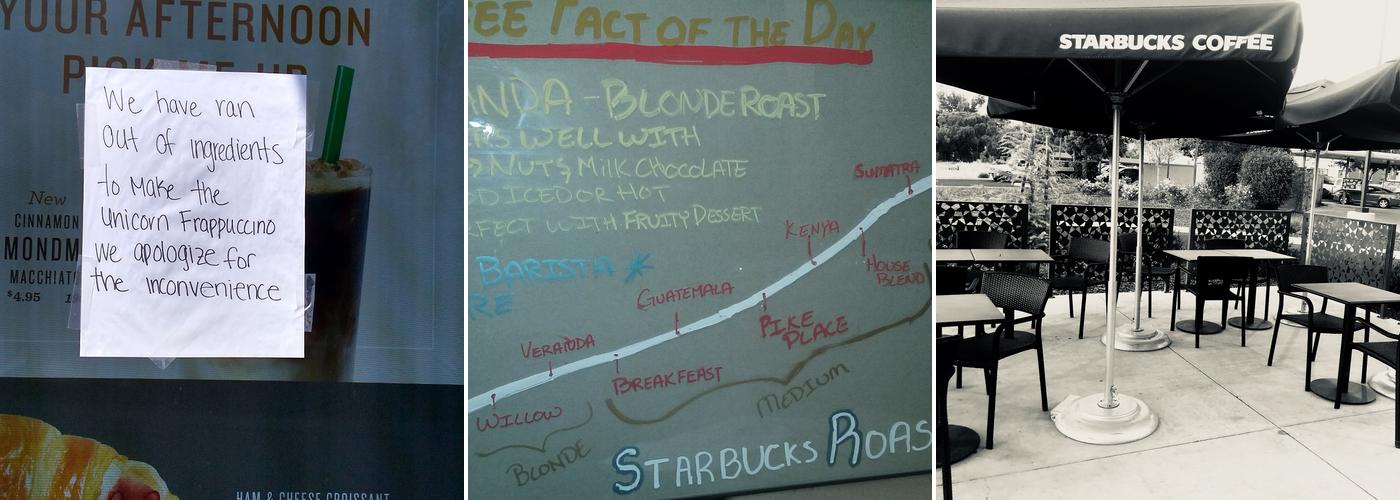 YOUR AFTERNOON
PICK-ME-UP
We have ran
out of ingredients
to Make the
Unicorn Frappuccino
we apologize for
the inconvenience
New
CINNAMON
MONDM
MACCHIAT
$4.95
HAM & CHEESE CROISSANT
FEE FACT OF THE DAY
ANDA - BLONDE ROAST
RS WELL WITH
D NUTS, MILK CHOCOLATE
OD ICED OR HOT
RFECT WITH FRUITY DESSERT
BARISTA
RE
SUMATRA
KENYA
HOUSE
BLEND
GUATEMALA
PIKE
PLACE
VERANDA
BREAKFEAST
WILLOW
MEDIUM
BLONDE
STARBUCKS ROAS
STARBUCKS COFFEE